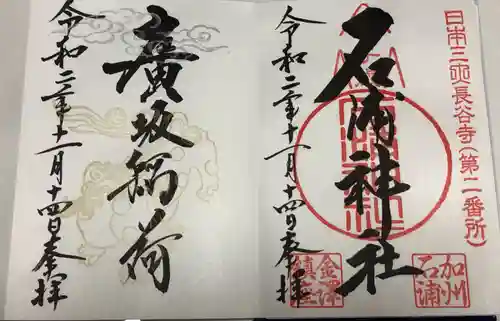 日本三所長谷寺(第二番所)
石浦神社
令和二年十一月十四日奉拝
加州
石浦
金澤
鎮座
廣坂稲荷
令和二年十一月十四日奉拝